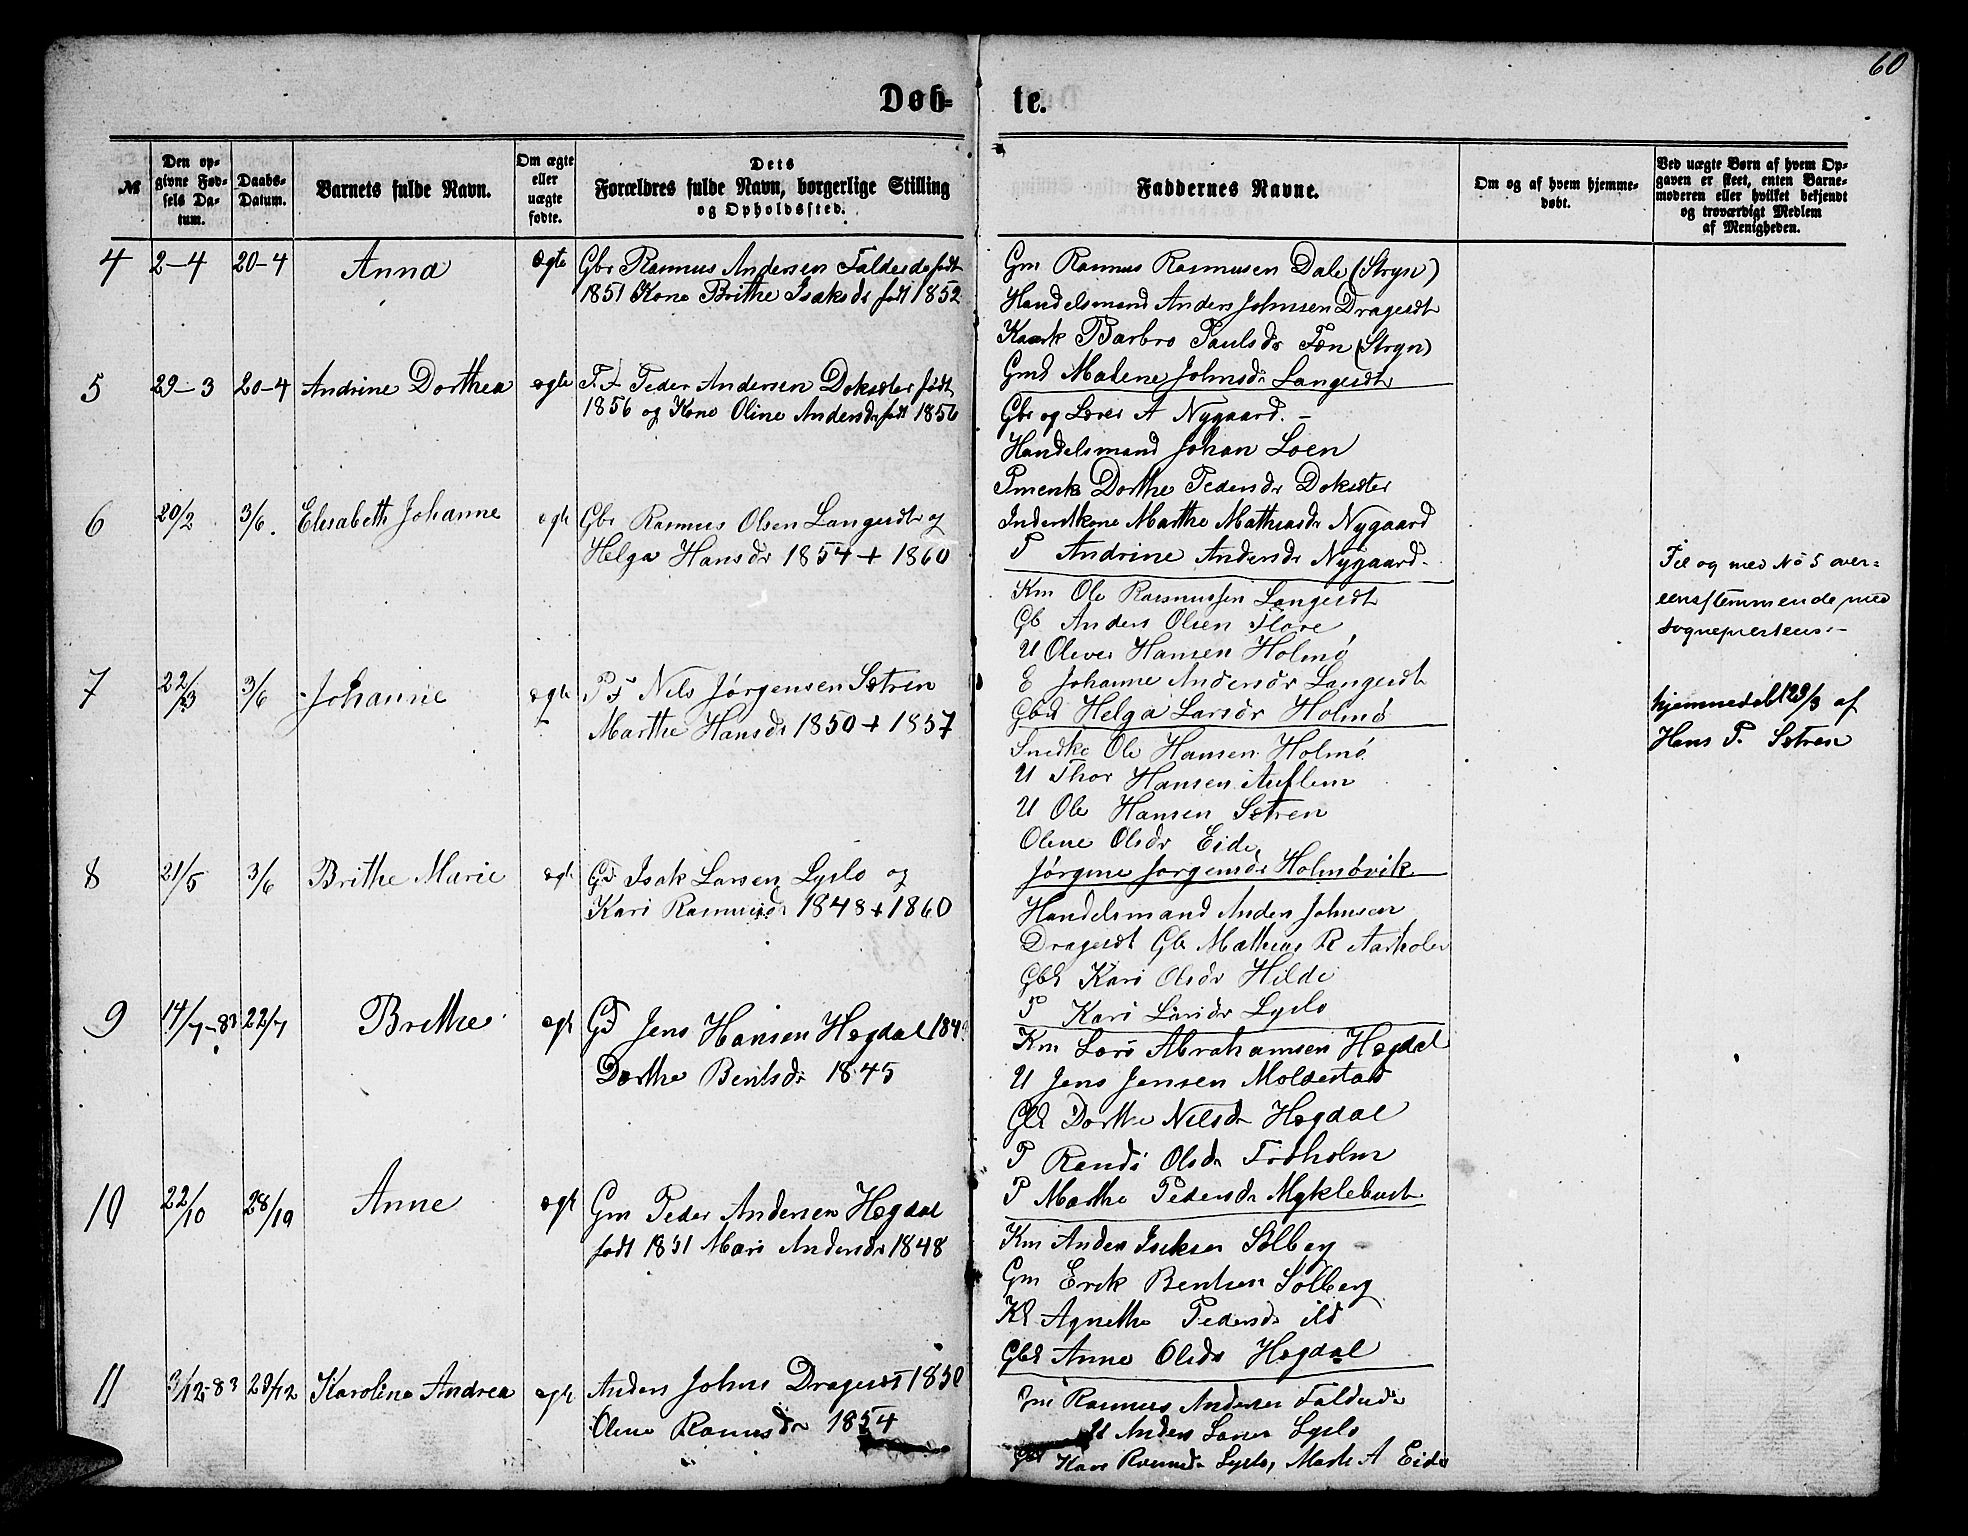 60
Døb- te.
№
Den opgivne Fødsels Datum.
Daabs-Datum.
Barnets fulde Navn.
Om ægte eller uægte fødte.
Dets
Forældres fulde Navn, borgerlige Stilling
og Opholdssted.
Faddernes Navne.
Om og af hvem hjemmedøbt.
Ved uægte Børn af hvem Op-
gaven er skeet, enten Barne-
moderen eller hvilket bekjendt
og troværdigt Medlem
af Menigheden.
4 2-4 20-4 Anna ægte Gbr Rasmus Andersen født
1851 Kone Brithe Isaksdr født 1852
Gm Rasmus Rasmusen Dale (Stryn)
Handelsmand Anders Johnsen Dragesdt
Barbro Paulsdr (Stryn)
Malene Johnsdr Langesdt
5 29-3 20-4 Andrine Dorthea ægte Peder Andersen født
1856 og Kone Oline Andersdr født 1856
Gbr og Lærer A Nygaard.
Handelsmand Johan Loen
Dorthe Pedersdr
Marthe Mathiasdr Nygaard
P Andrine Andersdr Nygaard.
6 20/2 3/6. Elisabeth Johanne ægte Gbr Rasmus Olsen Langesdt og
Helga Hansdr 1854 + 1860
Km Ole Rasmussen Langesdt
Gb Anders Olsen Flore
U Oliver Hansen Holmø
E Johanne Andersdr Langesdt
Gbd Helga Larsdr Holmø
Til og med No 5 over=
eensstemmende med
Sogneprestens
7 22/3 3/6 Johanne ægte P F Nils Jørgensen Sætren
Marthe Hansdr 1850 + 1857
Ole Hansen Holmø
U Thor Hansen Auflem
U Ole Hansen Sætren
Olene Olsdr Eide
Jørgine Jørgensdr Holmøvik
hjemmedøbt 29/3 af
Hans P. Sætren
8 21/5 3/6 Brithe Marie ægt Isak Larsen Lyslo og
Kari Rasmusdr 1848 + 1860
Handelsmand Anders Johnsen
Dragesdt Gbr Mathias R Aarholen
Gbd Kari Olsdr Hilde
P Kari Larsdr Lyslo
9 14/7-83 22/7 Brithe ægt Jens Hansen Hegdal
Dorthe Bentsdr 1845
Km Lars Abrahamsen Hegdal
U Jens Jensen Moldestad
Gbd Dorthe Nilsdr Hegdal
P Randi Olsdr Froholm
P Marthe Pedersdr Myklebust
10 22/10 28/10 Anne ægt Gm Peder Andersen Hegdal
født 1851 Mari Andersdr 1848
Km Anders Solberg
Gm Erik Bentsen Solberg
Agnethe Pedersdr ibd
Gbd Anne Olsdr Hegdal
11 3/12-83 29/12 Karoline Andrea ægt Anders Johns Dragesdt 1850
Oline Rasmusdr 1854
Gm Rasmus Andersen
U Anders Larsen Lyslo
Gbd Kari Rasmusdr Lyslo, A Eide